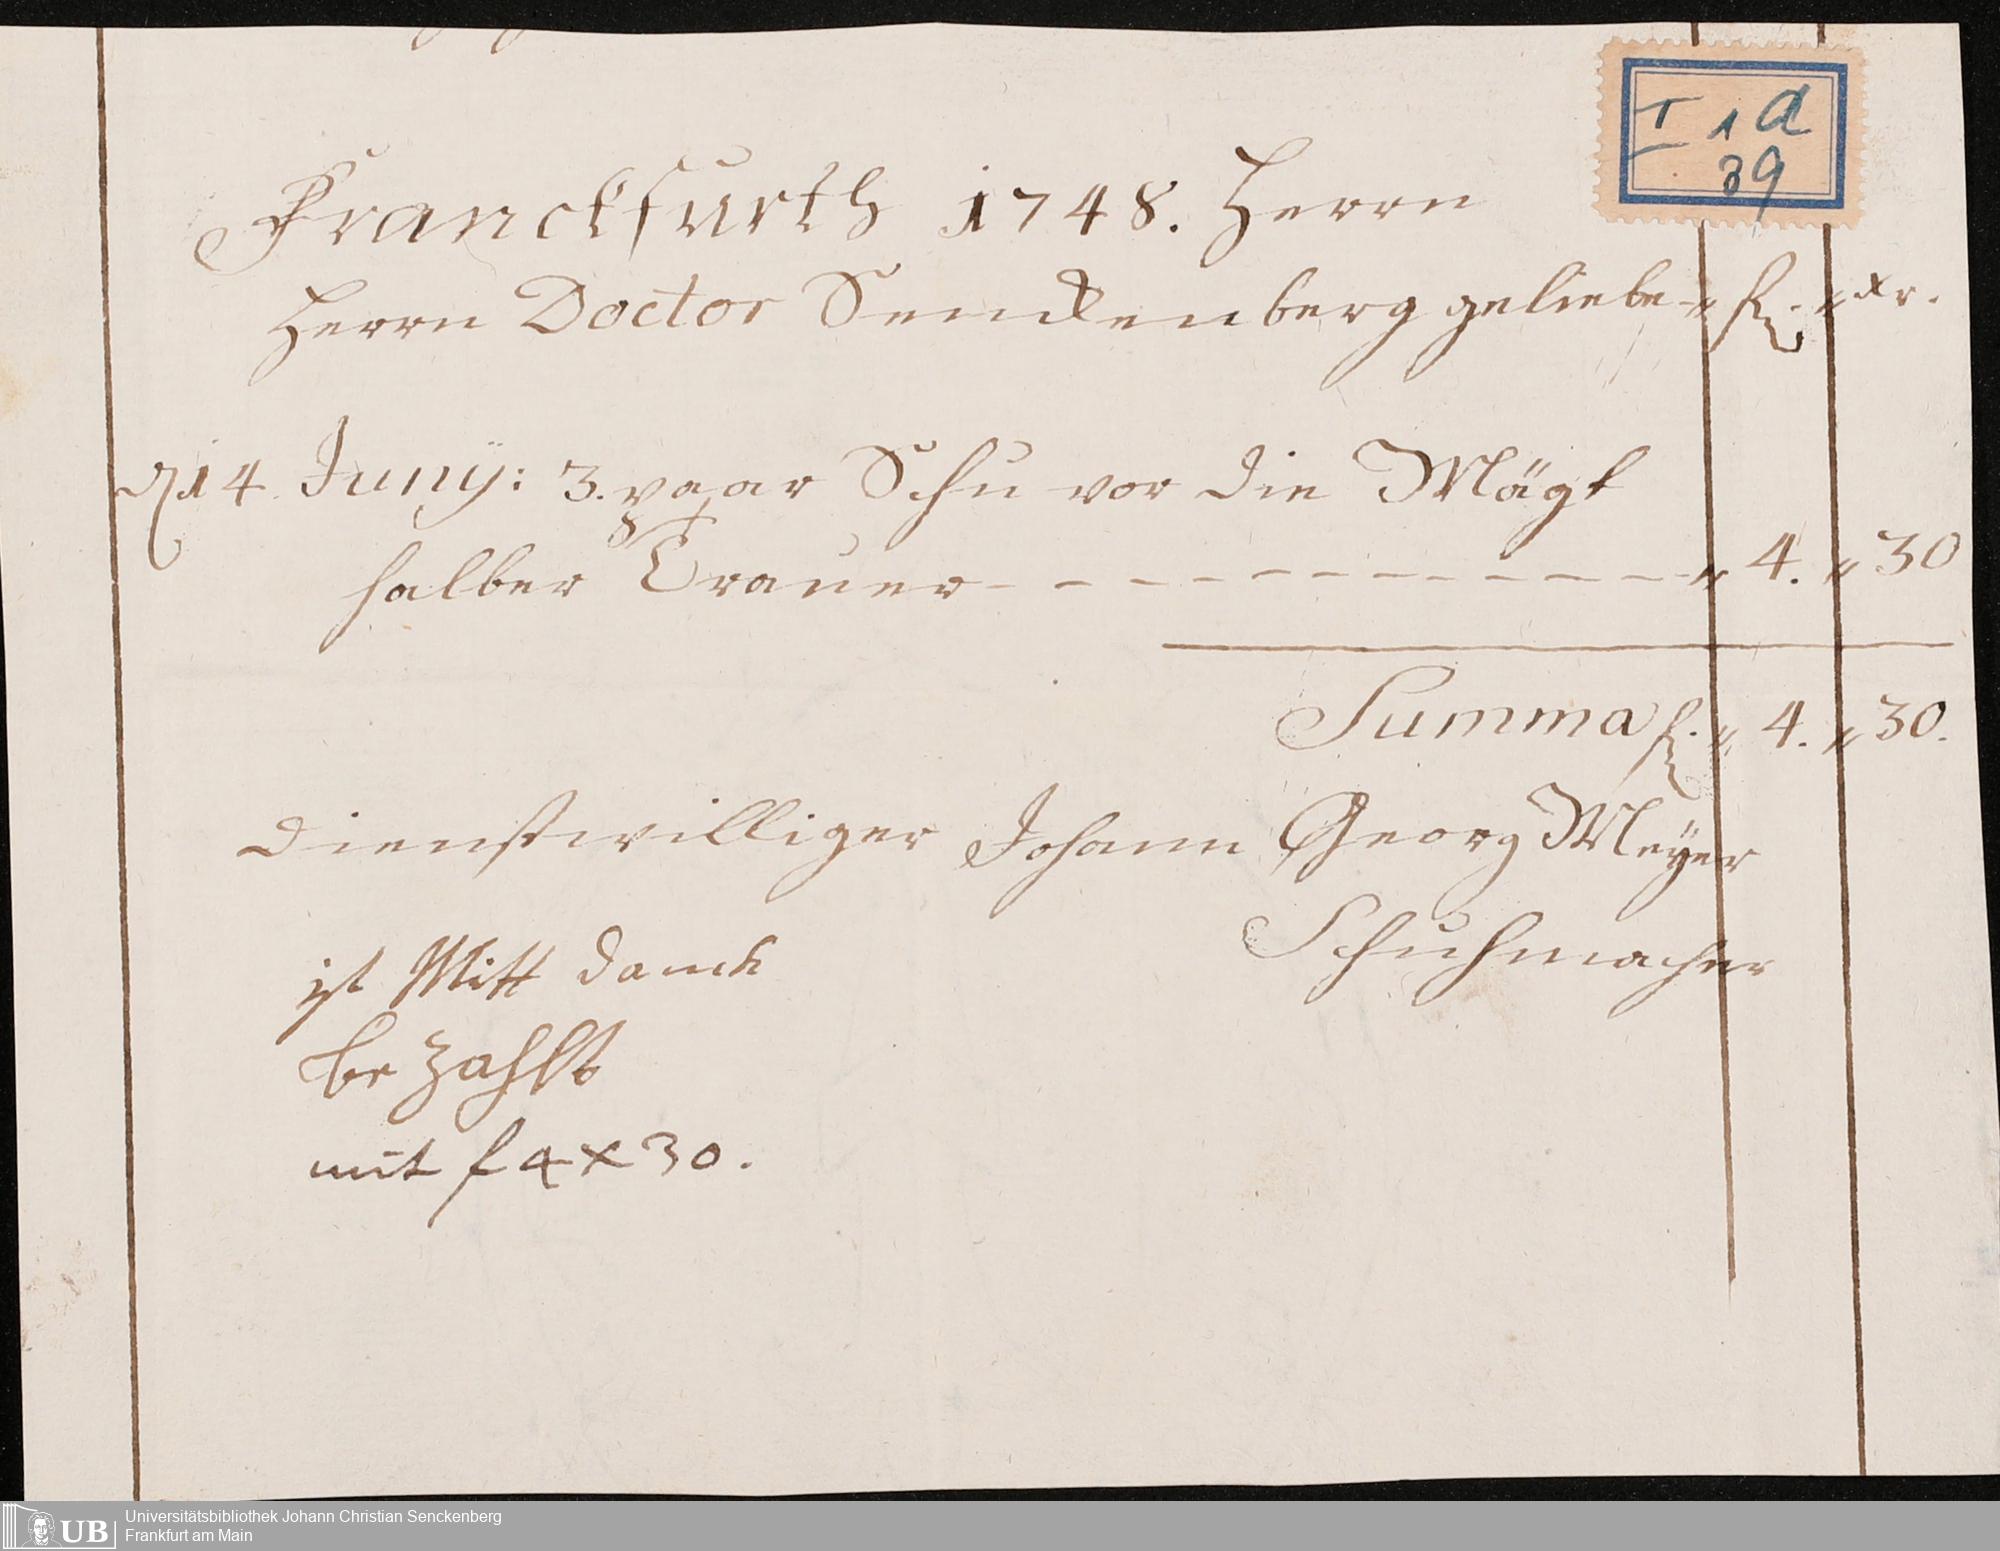 I 1 a
39
Franckfurth 1748. Herrn
Herrn Doctor Senckenberg geliebe " fl. " xr.
d 14 Juny: 3. paar Schu vor die Mägt
halber Trauer - - - - - - - - - - - - " 4. " 30
Summa fl. " 4. " 30.
dienstwilliger Johann Georg Meÿer
Schuhmacher
ist Mitt danck
be zahlt
mit f 4 x 30.
UB Universitätsbibliothek Johann Christian Senckenberg
Frankfurt am Main